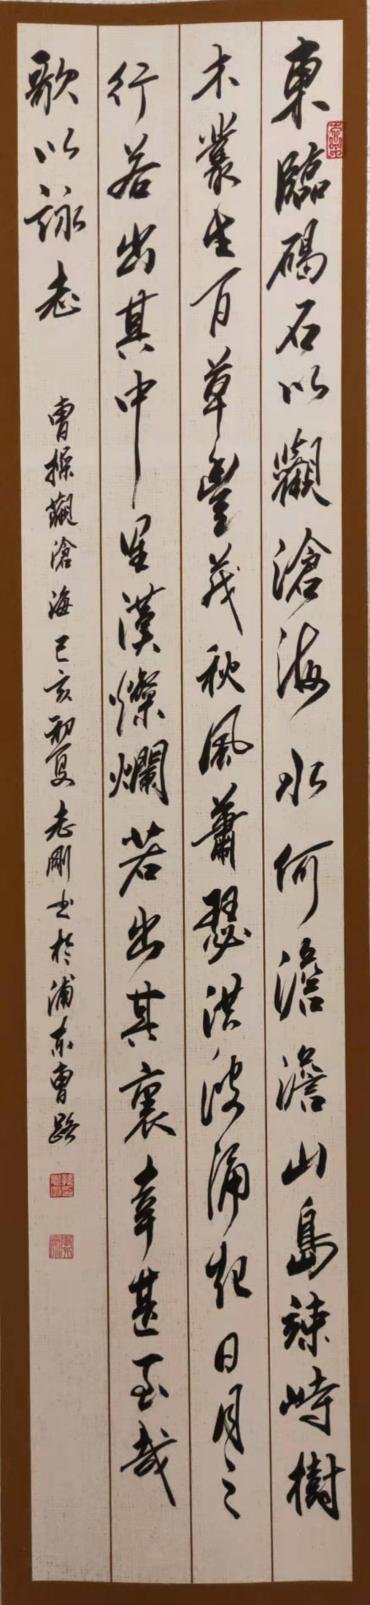 東臨碣石以觀滄海水何澹澹山島竦峙樹
木叢生百草豐茂秋風蕭瑟洪波涌起日月之
行若出其中星漢燦爛若出其裏幸甚至哉
歌以詠志
曹操觀滄海己亥初夏志剛書於浦东曹路